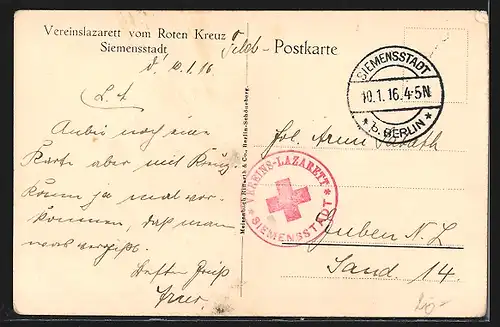 Vereinslazarett vom Roten Kreuz
Siemensstadt
Feld-Postkarte
d. 10.1.16.
L. A
Anbei noch eine
Karte aber mit Kreuz.
Kann ja mal vor-
kommen, daß man
was vergißt.
Besten Gruß
Meisenbach Riffarth & Co., Berlin-Schöneberg.
SIEMENSSTADT
10.1.16.4-5N.
* b. BERLIN *
VEREINS-LAZARETT
* SIEMENSSTADT *
Guben N. L.
Sand 14.